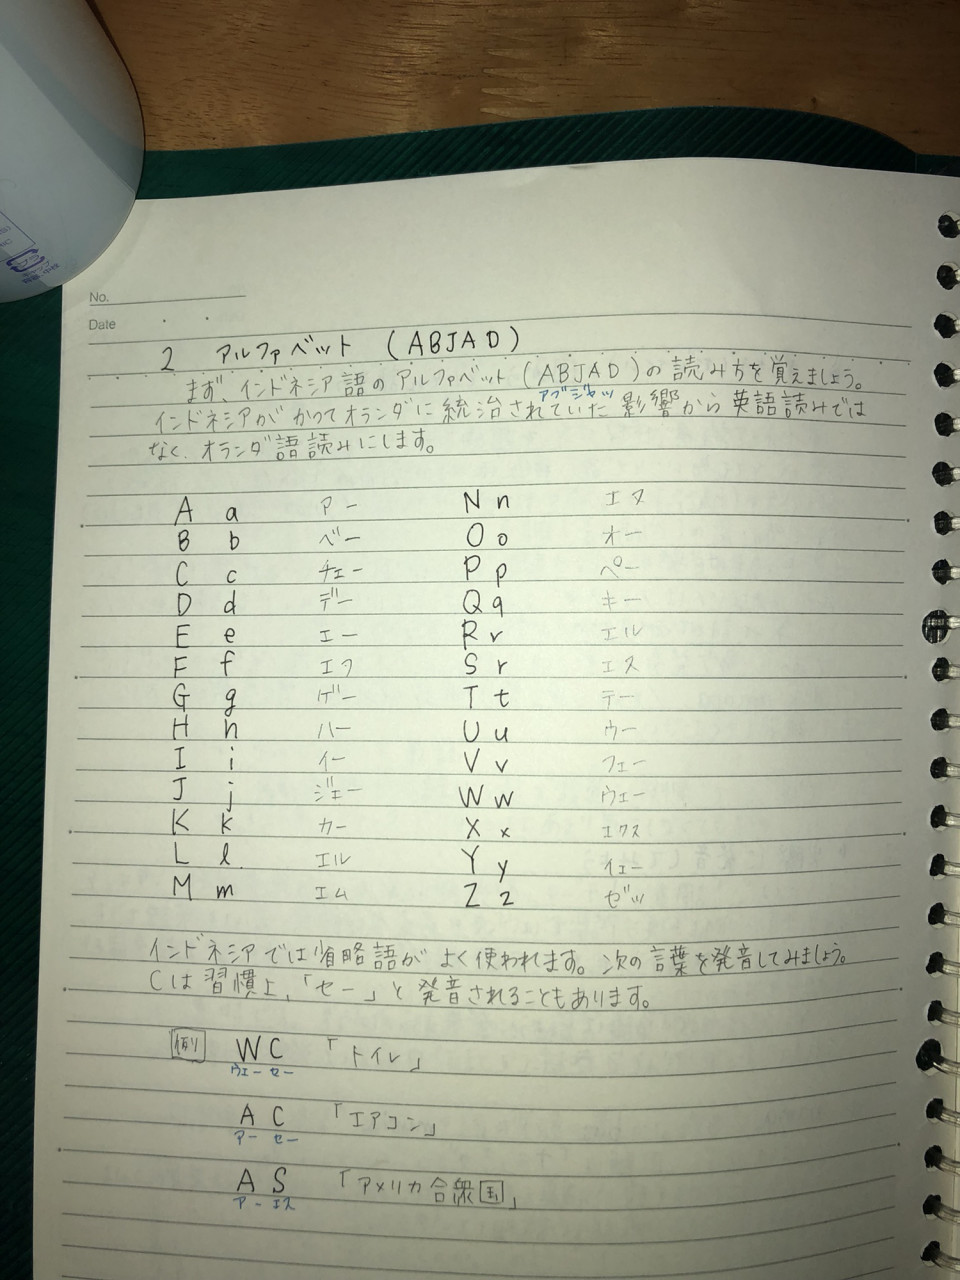 No.
Date
2 アルファベット (ABJAD)
まず、インドネシア語のアルファベット(ABJAD)の読み方を覚えましょう。
アブジャッ
インドネシアがかつてオランダに統治されていた影響から英語読みでは
なく、オランダ語読みにします。
A a アー N n エヌ
B b ベー O o オー
C c チェー P p ペー
D d デー Q q キー
E e エー R r エル
F f エフ S r エス
G g ゲー T t テー
H h ハー U u ウー
I i イー V v フェー
J j ジェー W w ウェー
K k カー X x エクス
L l エル Y y イェー
M m エム Z z ゼッ
インドネシアでは省略語がよく使われます。次の言葉を発音してみましょう。
Cは習慣上、「セー」と発音されることもあります。
例 WC 「トイレ」
ウェー セー
AC 「エアコン」
アー セー
AS 「アメリカ合衆国」
アー エス